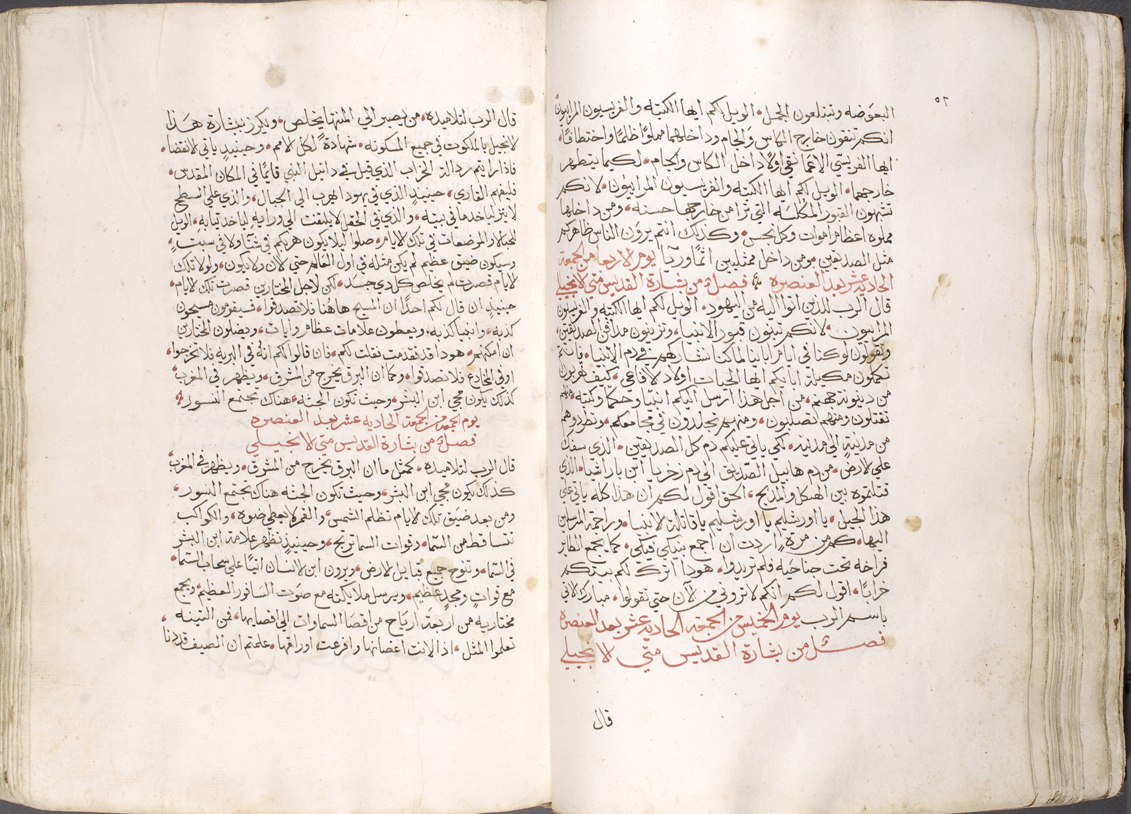 ٥٢
البعوضه وتبتلعون الجمل الويل لكم ايها الكتبه والفريسيون المرايون
انكم تنقون خارج الكاس والجام وداخلهما مملوا ظلما واختطافا
ايها الفريسي الاعما نقي اولا داخل الكاس والجام لكيما يتطهر
خارجهما الويل لكم ايها الكتبه والفريسيون المرايون لانكم
تشبهون القبور المكلسه التي ترا من خارجها حسنه ومن داخلها
مملوه اعظام اموات وكل نجس وكذلك انتم يروون الناس ظاهركم
مثل الصديقين ومن داخل ممتليين اثما وريا يوم الاربعا من الجمعة
الحاديه عشر بعد العنصره فصل من بشارة القديس متي الانجيلي
قال الرب للذين اتوا اليه من اليهود الويل لكم ايها الكتبه والفريسيون
المرايون لانكم تبنون قبور الانبيا وتزينون مدافن الصديقين
وتقولون لو كنا في ايام ابايِنا لم نكن نشاركهم في دم الانبيا فانتم
تكملون مكيلة ابايكم ايها الحيات اولاد الافاعي كيف تهربون
من دينونة جهنم من اجل هذا ارسل اليكم انبيا وحكما وكتبه فمنهم
تقتلون ومنهم تصلبون ومنهم تجلدون في مجامعكم وتطردوهم
من مدينة الي مدينه لكي ياتي عليكم دم كل الصديقين الذي سفك
علي الارض من دم هابيل الصديق الي دم زخريا ابن باراشيا الذي
قتلتموه بين الهيكل والمدبح الحق اقول لكم ان هذا كله ياتي علي
هذا الجيل يا اورشليم يا اورشليم يا قاتلة الانبيا وراجمة المرسلين
اليها كم من مرة اردت ان اجمع بنيكي كما يجمع الطاير
فراخه تحت جناحيه فلم تريدوا هوذا اترك لكم بيتكم
خرابا اقول لكم انكم لا تروني من الان حتي تقولوا مبارك الاتي
باسم الرب يوم الخميس من الجمعة الحاديه عشر بعد العنصره
فصل من بشارة القديس متي الانجيلي
قال
قال الرب لتلاميذه من يصبر الي المنتها يخلص ويكرز ببشارة هذا
الانجيل بالملكوت في جميع المسكونه شهادة لكل الامم وحينيذ ياتي الانقضا
فاذا رايتم ردالة الخراب الذي قيل في دانيل النبي قايما في المكان المقدس
فليفهم القاري حينيذ الذي في يهودا يهرب الي الجبال والذي علي السطح
لا ينزل ياخد ما في بيته والذي في الحقل لا يلتفت الي ورايه لياخد تيابه الويل
للحبالا والمرضعات في تلك الايام صلوا ليلا يكون هربكم في شتا ولا في سبت
وسيكون ضيق عظيم لم يكن مثله في اول العالم حتي الان ولا يكون ولولا تلك
الايام قصرت لم يخلص كل دي جسد لكن لاجل المختارين قصرت تلك الايام
حينيذ ان قال لكم احدا ان المسيح هاهنا فلا تصدقوا فسيقومون مسيحون
كذبه وانبيا كذبه ويعطون علامات عظام وايات ويضلون المختارين
ان امكنهم هودا قد تقدمت فقلت لكم فان قالوا لكم انه في البريه فلا تخرجوا
او في المخادع فلا تصدقوا وكما ان البرق يخرج من المشرق ويظهر في المغرب
كذلك يكون مجي ابن البشر وحيث تكون الجثه هناك تجتمع النسور
يوم الجمعه من الجمعة الحاديه عشر بعد العنصره
فصل من بشارة القديس متي الانجيلي
قال الرب لتلاميذه كمثل ما ان البرق يخرج من المشرق ويظهر في المغرب
كذلك يكون مجي ابن البشر وحيث تكون الجثه هناك تجتمع النسور
ومن بعد ضيق تلك الايام تظلم الشمس والقمر لا يعطي ضوه والكواكب
تتساقط من السما وقوات السما ترتج وحينيذ تظهر علامة ابن البشر
في السما وتنوح جميع قبايل الارض ويرون ابن الانسان اتيا علي سحاب السما
مع قوات ومجد عظيم ويرسل ملايكته مع صوت السافور العظيم ويجمع
مختاريه من اربعة ارياح من اقصا السماوات الي اقصايها فمن التينه
تعلموا المثل اذا لانت اغصانها وافرعت اوراقها علمتم ان الصيف قد دنا